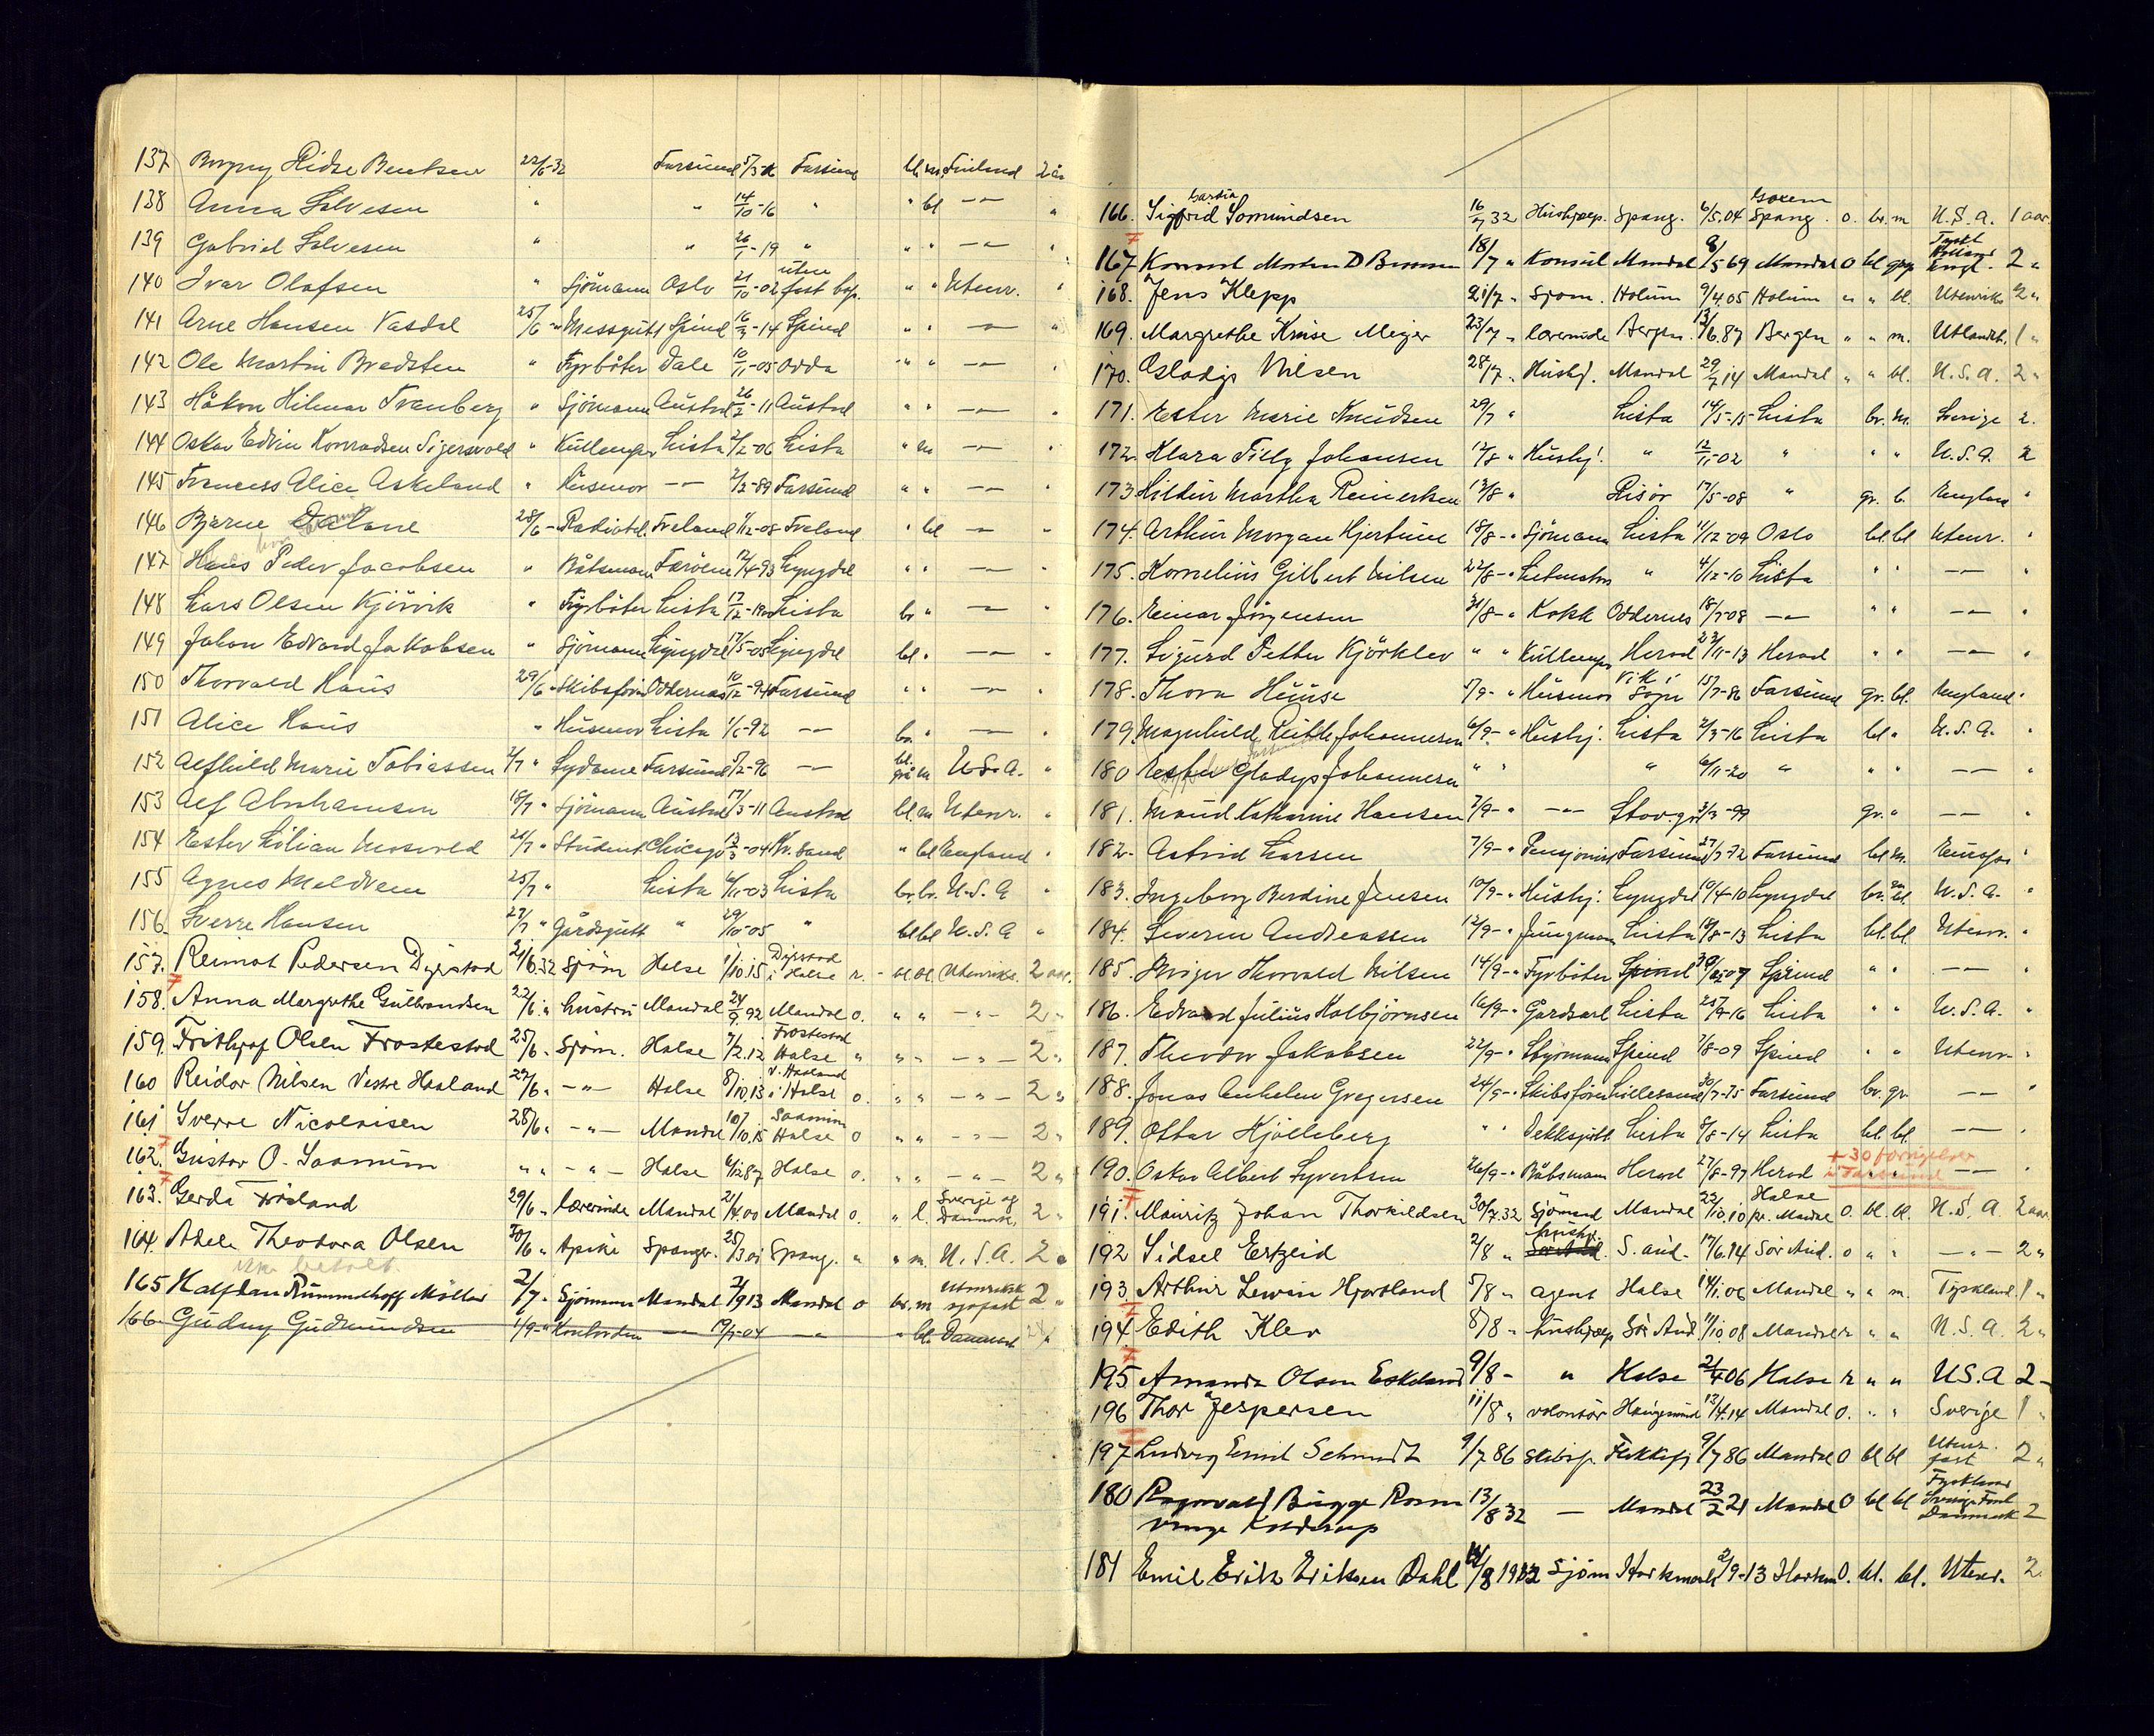 137 Borgny Hidse Bentsen 22/6-32 Farsund Farsund bl. m. Finland 2 år
138 Anna Salvesen " " 14/10-16 " " bl -"- "
139 Gabriel Salvesen " " 26/1-19 " " " -"- "
140 Ivar Olafsen " Sjömann Oslo 21/10-02 uten fast bop. " " Utenr. "
141 Arne Hansen Vasdal 25/6-" Messgutt Spind 16/3-14 Spind " " -"- "
142 Ole Martin Bredsten " Fyrböter Dale 10/11-05 Odda " " -"- "
143 Håkon Hilmar Tranberg " Sjömann Austad 26/2-11 Austad " " -"- "
144 Oskar Edvin Konradsen Sigersvold " Kullemper Lista 2/2-06 Lista " m -"- "
145 Francess Alice Askeland " Husmor -"- 2/2-89 Farsund " " -"- "
146 Bjarne Dalane 28/6-" Radiotel. Treland 1/12-08 Treland " bl -"- "
147 Hans Peder Jacobsen " Båtsmann Færöene 12/4-93 Lyngdal " " -"- "
148 Lars Olsen Kjörvik " Fyrböter Lista 17/12-1900 Lista br " -"- "
149 Johan Edvard Jakobsen " Sjömann Lyngdal 17/5-05 Lyngdal bl. " -"- "
150 Thorvald Haus 29/6-" Skibsförer Oddernes 10/12-94 Farsund " " -"- "
151 Alice Haus " Husmor Lista 1/6-92 -"- br. " -"- "
152 Alfhild Marie Tobiassen 2/7 " Sydame Farsund 5/2-96 -"- bl. grå m U.S.A. "
153 Alf Abrahamsen 18/7 " Sjömann Austad 17/3-11 Austad bl. m Utenr. "
154 Ester Lilian Mosvold 21/7 " Student Chicago 13/3-04 Kr.sand " bl England "
155 Agnes Meldrem 25/7 " Lista 6/11-03 Lista br. br. U.S.A "
156. Sverre Hansen 27/7 " Gårdsgutt " 29/10-05 " bl bl U.S.A "
157. Reimot Pedersen Dyrstad 21/6.32 Sjöm Halse 1/10.15 Dyrstad i Halse r. - bl bl. Utenriks. 2 aar.
158. Anna Margrethe Gulbrandsen 22/6 " hustru Mandal 24/9.92 Mandal o. " " -"- 2 "
159. Frithjof Olsen Frostestad 25/6 " Sjöm. Halse 7/2.12 Frostestad Halse " " " -"- 2 "
160 Reidar Nilsen Vestre Haaland 27/6 " -"- Halse 8/10.13 V. Haaland i Halse o. " " -"- 2 "
161 Sverre Nicolaisen 28/6 " -"- Mandal 10/10.15 Saanum Halse o " " -"- 2 "
162. Gustav O. Saanum " " -"- Halse 6/12 87 Halse o. " " -"- 2 "
163. Gerda Fröland 29/6 " lærerinde Mandal 21/4.00 Mandal o. " l. Sverige og Danmark 2 "
164. Adele Theodora Olsen 30/6 " Spanger. Spang. " " m. U.S.A. 2 "
ikke betalt.
165 Halfdan Rummelhoff Möller 2/7 " Sjömann Mandal 2/9 13 Mandal o br. m Utenriksk sjøfart 2 "
166 Gudny Gudmundsen 1/9-" Kontordam -"- 19/7-04 -"- " bl. Danmark "
166. Sigfred Somundsen 16/7 32 Hushjælp. Spang. 6/5.04 Spang. o. br. m U.S.A. 1 aar.
167 Konrad Morten D 18/7 " Konsul Mandal 9/5 69 Mandal o bl Tyskl. Engl. 2 "
168. Jens Klepp 21/7 " Sjöm. Holum 9/4.05 Holum " " bl. Utenriks 2 "
169. Margrethe Kruse Meyer 23/7 " lærerinde Bergen. 13/6.87 Bergen " " m. Utlandet. 1 "
170. Gladys Nilsen 28/7 " Hushj. Mandal 29/7 14 Mandal " " bl. U.S.A. 2 "
171. Ester Marie Knudsen 29/7 " Lista 14/5-15 Lista br. m. Sverige 2.
172. Klara Tilly Johansen 12/8 " Hushj. " 12/11-02 " " " U.S.A. 2
173 Hildur Martha Reinertsen 13/8 " Risör 17/5-08 " gr. b. England "
174. Arthur Morgan Hjertum 18/8-" Sjömann Lista 11/12-09 Oslo bl. bl Utenr. "
175. Kornelius Gilbert Nilsen 22/8-" Letmatros " 4/12-10 Lista " " -"- "
176. Einar Jörgensen 31/8-" Kokk Oddernes 18/7-08 -"- " " -"- "
177. Sigurd Petter Kjörklev " " Kullemper Herad 23/11-13 Herad " " -"- "
178. Thora Huuse 5/9-" Husmor Vik i Sogn 15/7-86 Farsund gr. bl. England "
179. Magnhild Ruth Johannesen 6/9-" Hushj. Lista 2/3-16 Lista bl " U.S.A. "
180 Ester Gladys Johannesen " " " 6/11-20 " " " -"- "
181. Maud Katharine Hansen 7/9-" -"- 3/3-99 gr. " -"- "
182. Astrid Larsen 7/9-" Farsund 27/7-72 Farsund bl. m. Europa "
183. Ingeborg Berdine Jensen 10/9-" Hushj. Lyngdal 10/4-10 Lyngdal br. bl. U.S.A. "
184. Severin Andreassen 12/9-" Jungmann Lista 19/8-13 Lista bl. bl. Utenr. "
185. Thorvald Nilsen 14/9-" Fyrböter Spind Spind " " -"- "
186. Edvard Julius Kolbjörnsen 16/9-" Gårdsarb Lista 25/9-16 Lista " " U.S.A. "
187. Theodor Jakobsen 22/9-" Styrmann Spind 7/8-09 Spind " " Utenr. "
188. Jonas Anhelm Gregersen 24/9-" Skibsförer Lillesand 30/7-75 Farsund br. gr -"- "
189. Ottar Hjölleberg " " Dekksgutt Lista 8/8-14 Lista bl. bl. -"- "
190. Oskar Albert Syvertsen 26/9-" Båtsmann Herad 27/8-97 Herad " " -"- "
+ 30 fornyelser i Farsund
191. Mauritz Johan Thorkildsen 30/7.32 Sjömand Mandal 22/10.10 Halse pr. Mandal o. bl. bl. U.S.A. 2 aar.
192 Sidsel Ertzeid 2/8 " hushj. S. aud. 17/6.14 Sör Aud. o " " -"- 2 "
193. Arthur Lewin Hjortland 5/8 " agent Halse 14/1.06 Mandal " " m. Tyskland. 1 "
194. Edith Klev 8/8 " hushjælp Sör Aud. 11/10 08 Mandal r " " U.S.A. 2 "
195 Amanda Olsen Eskeland 9/8 - " Halse 21/4 06 Halse r " " U.S.A 2 -
196 Thor Jespersen 11/8 " volontör Haugesund 13/4.14 Mandal o. " " Sverige 1 "
197 Ludvig Emil Schmidt 9/7 86 Skibsf. Flekkefj 9/7 86 Mandal o bl bl Utenr. fart 2 "
180 Ragnvald Bugge Rosenvinge Kolderup 13/8 32 — Mandal 23/2 21 Mandal o bl bl Tyskland Danmark 2
181 Emil Erik Eriksen Dahl /8 1932 Sjöm Harkmark 2/9-13 Harkm o. bl. bl. Utenr. 2